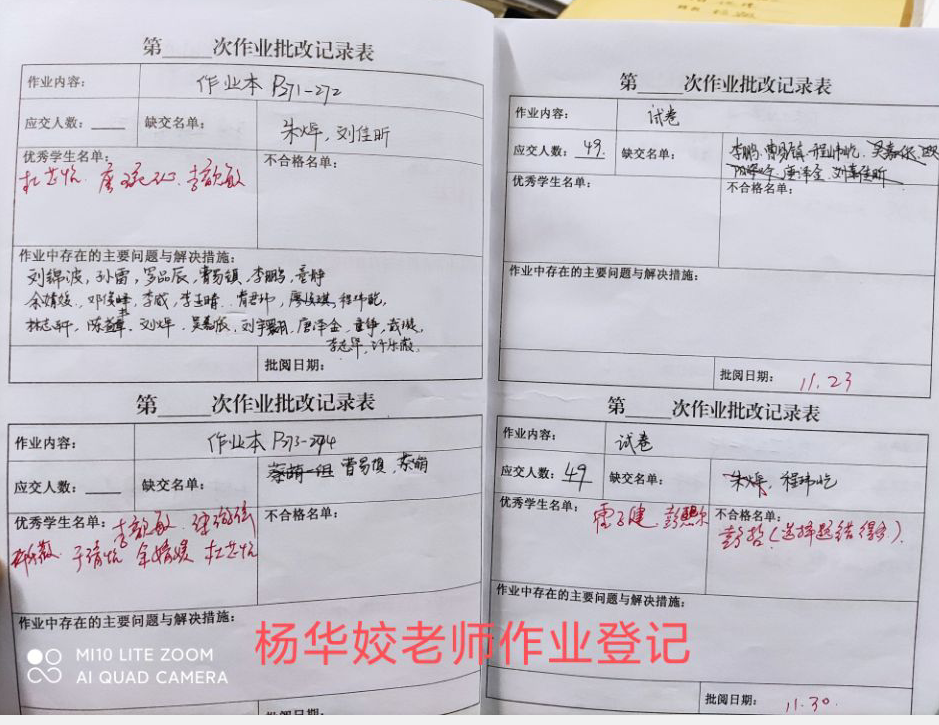 第____次作业批改记录表
作业内容：
作业本 P271-272
应交人数：____ 缺交名单：
朱烨，刘佳昕
优秀学生名单：
不合格名单：
李歆敏
作业中存在的主要问题与解决措施：
刘锦波，孙雷，罗品辰，曹易镇，李鹏，童静
余婧媛，邓俊峰，李威，李玉晴，
刘烨，吴嘉辰，刘宇翾，唐泽金，童静，
批阅日期：
第____次作业批改记录表
作业内容：
作业本 P273-274
应交人数：____ 缺交名单：
曹易镇，蔡萌
优秀学生名单：
不合格名单：
李歆敏
余婧媛 杜芷忻
作业中存在的主要问题与解决措施：
批阅日期：
第____次作业批改记录表
作业内容：
试卷
应交人数：49. 缺交名单：
李鹏，曹易镇，程帅屹，吴嘉辰，
唐泽金，
优秀学生名单：
不合格名单：
作业中存在的主要问题与解决措施：
批阅日期：
11.23
第____次作业批改记录表
作业内容：
试卷
应交人数：49 缺交名单：
朱烨，程玮屹
优秀学生名单：
不合格名单：
彭哲（选择题错得多）.
作业中存在的主要问题与解决措施：
批阅日期：
11.30.
杨华姣老师作业登记
MI10 LITE ZOOM
AI QUAD CAMERA